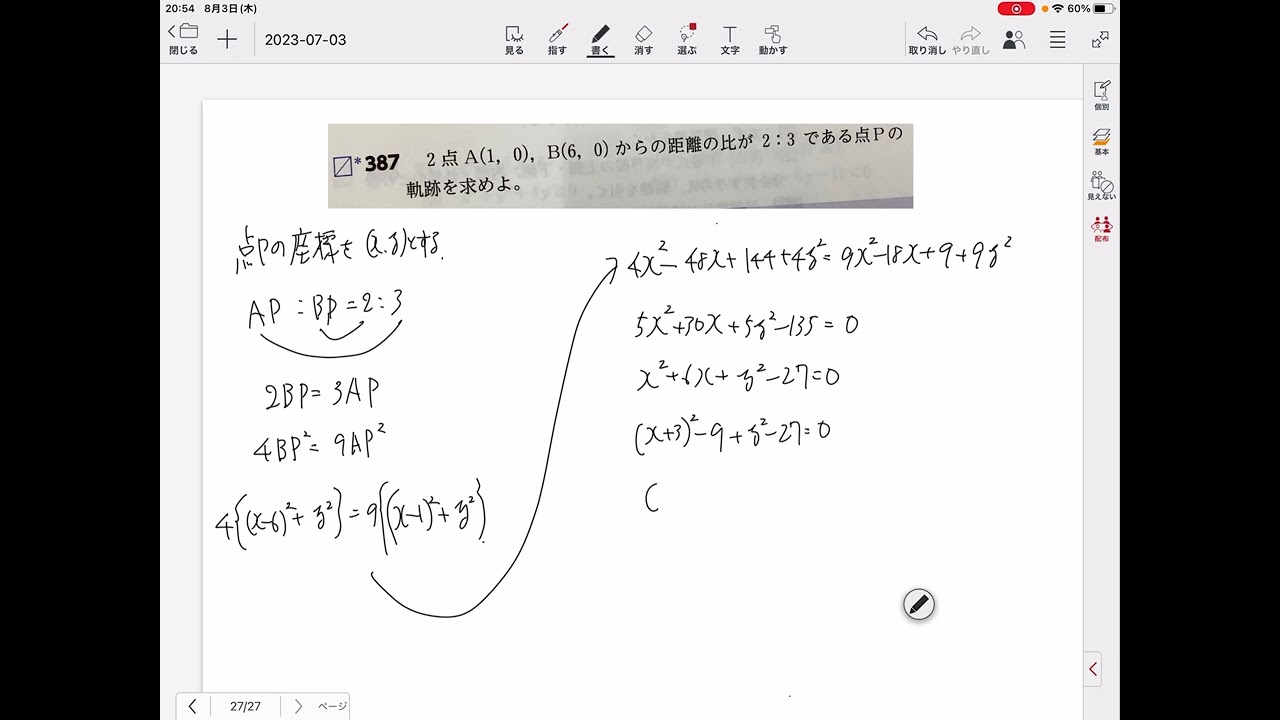 20:54 8月3日(木)
60%
閉じる
2023-07-03
見る 指す 書く 消す 選ぶ 文字 動かす
取り消し やり直し
個別
基本
見えない
配布
*387 2点A(1, 0), B(6, 0)からの距離の比が2:3である点Pの
軌跡を求めよ。
点Pの座標を(x,y)とする.
AP:BP=2:3
2BP=3AP
4BP²=9AP²
4{(x-6)²+y²}=9{(x-1)²+y²}
4x²-48x+144+4y²=9x²-18x+9+9y²
5x²+30x+5y²-135=0
x²+6x+y²-27=0
(x+3)²-9+y²-27=0
(
27/27
ページ